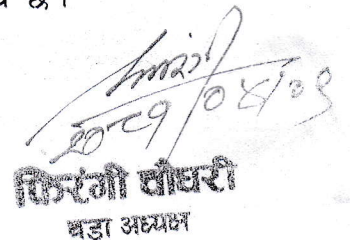 छ।
२०८१/०४/०९
फिरंगी चौधरी
वडा अध्यक्ष